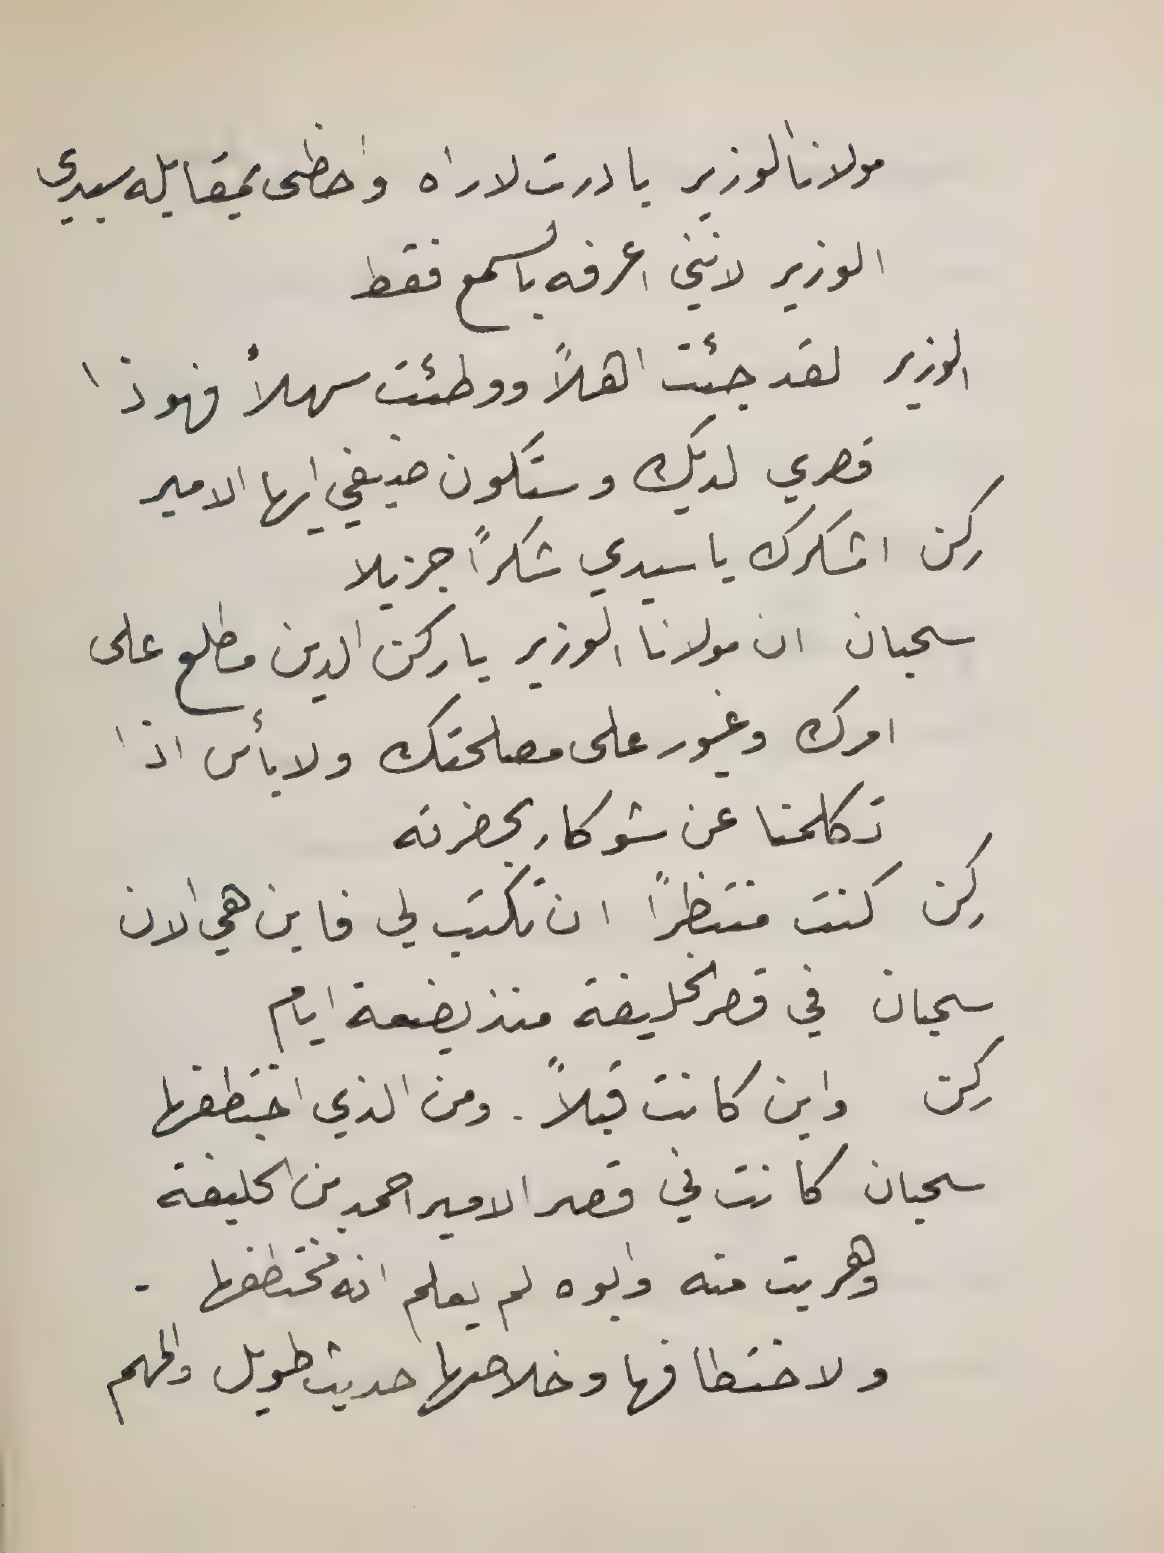 مولانا الوزير بادرت لاراه واحظى بمقابله سيدي
الوزير لانني اعرفه بالسمع فقط
الوزير لقد جئت اهلاً ووطئت سهلاً فهوذا
قصري لديك وستكون ضيفي ايها الامير
ركن اشكرك يا سيدي شكراً جزيلا
سحبان ان مولانا الوزير يا ركن الدين مطلع على
امرك وغيور على مصلحتك ولا بأس اذا
تكلمنا عن شوكار بحضرته
ركن كنت منتظراً ان تكتب لي فاين هي الان
سحبان في قصر الخليفة منذ بضعة ايام
ركن واين كانت قبلاً . ومن الذي اختطفها
سحبان كانت في قصر الامير احمد بن الخليفة
وهربت منه وابوه لم يعلم انه مختطفها -
ولاختطافها وخلاصها حديث طويل والمهم